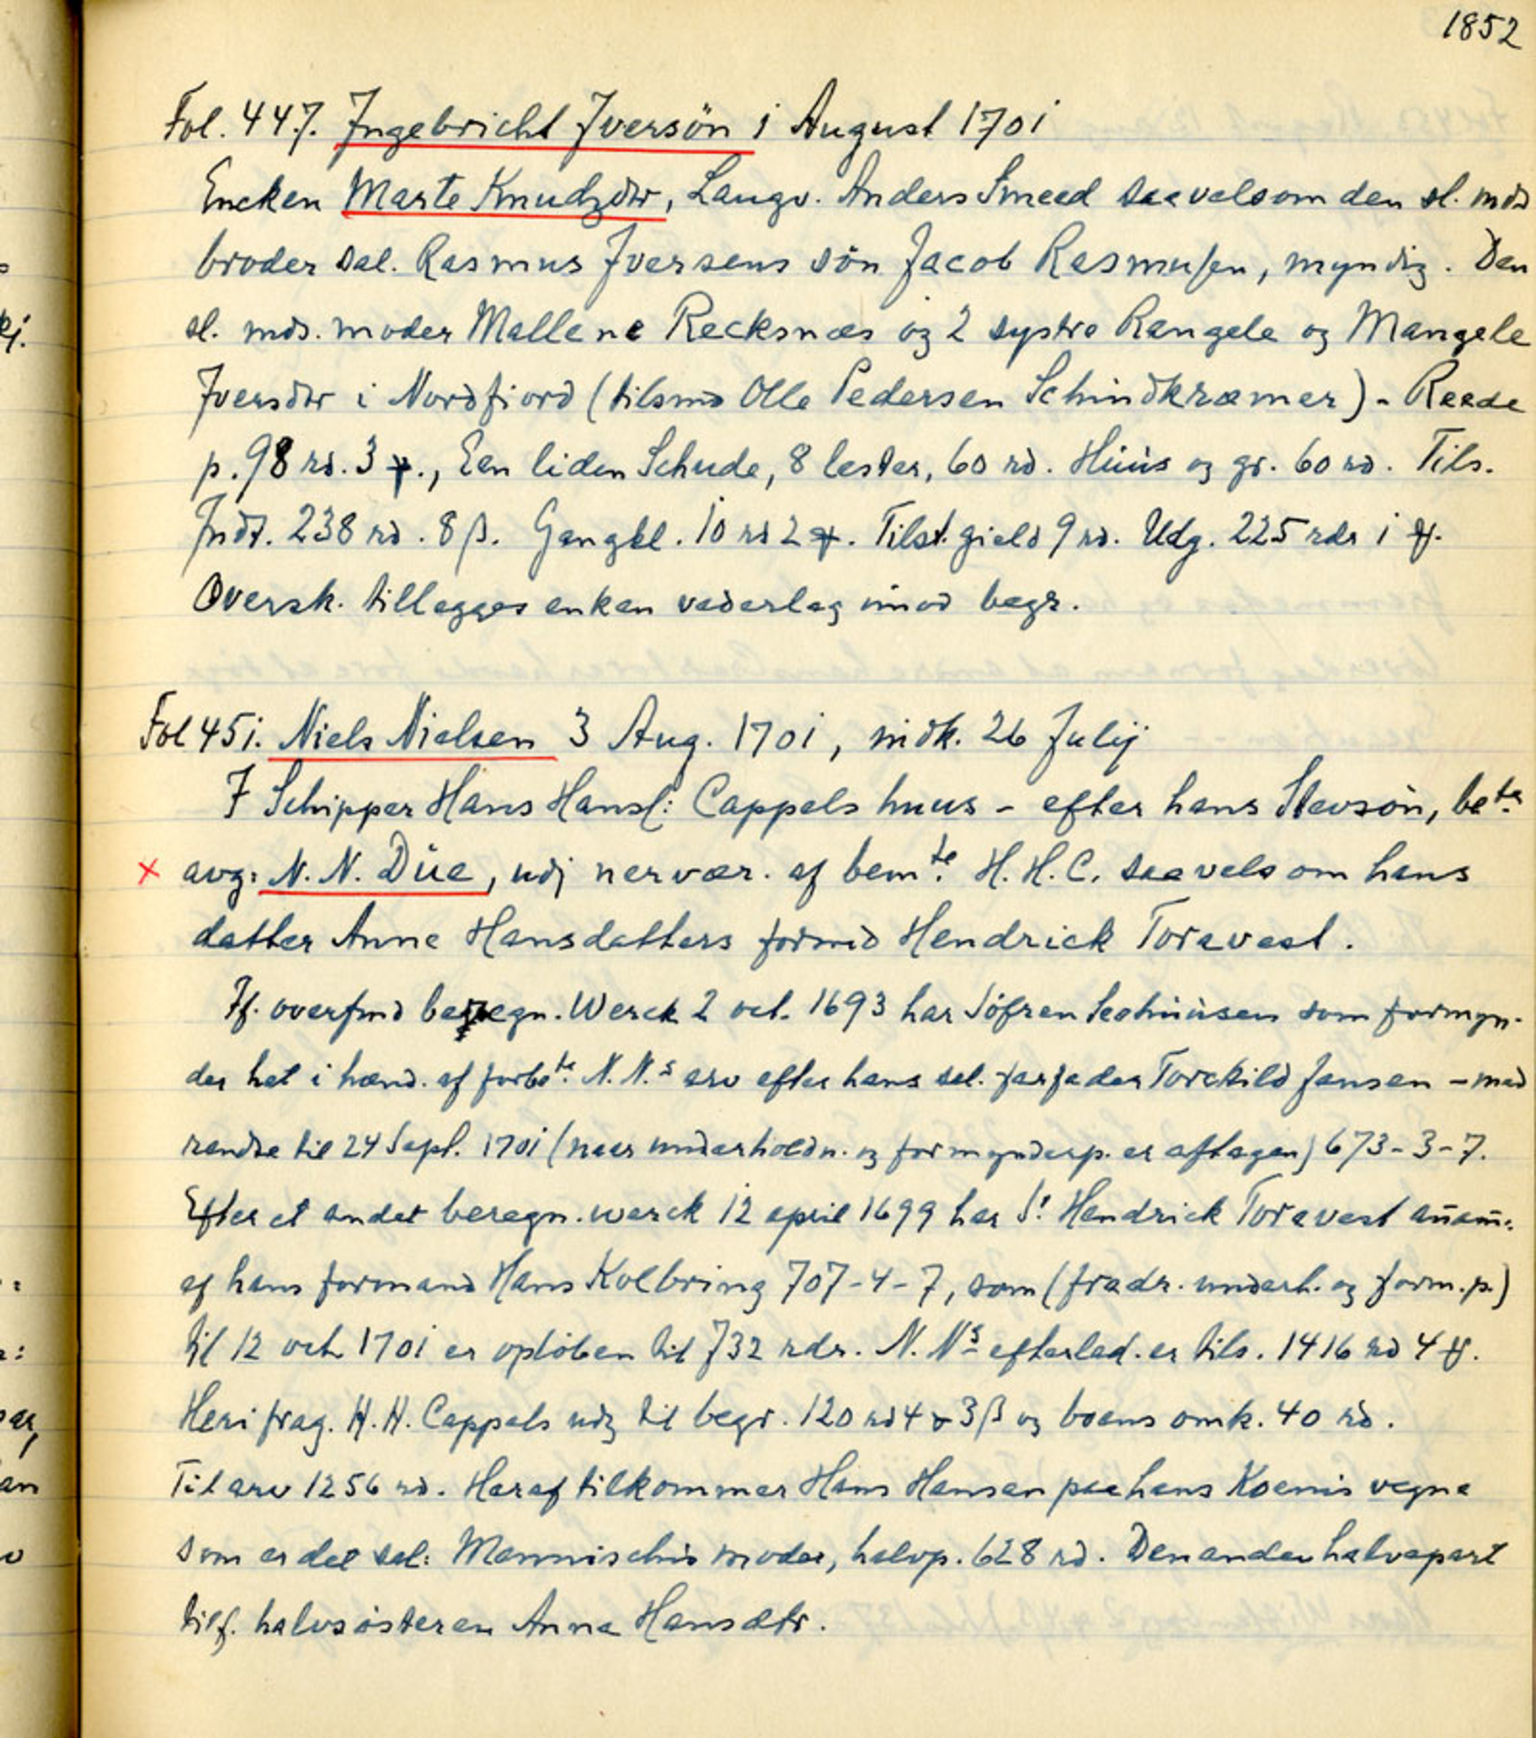 1852
Fol. 447. Ingebricht Iversön 1 August 1701
Encken Marte Knudzdtr, Laugv. Anders Smeed saavelsom den sl. mds
broder sal. Rasmus Iversens sön Jacob Rasmusen, myndig. Den
sl. mds. moder Mallene Recksnæs og 2 systre Rangele og Mangele
Iversdtr i Nordfiord (tilsmd Olle Pedersen Schindkræmer) - Reede
p. 98 rd. 3 ., Een liden Schude, 8 lester, 60 rd. Hüüs og gr. 60 rd. Tils.
Indt. 238 rd. 8 ß. Gangkl. 10 rd 2 . Tilst. gield 9 rd. Udg. 225 rdr 1 .
Oversk. tillegges enken vederlag imod begr.
Fol 451. Niels Nielsen 3 Aug. 1701, nidk. 26 Julij
I Schipper Hans Hansf: Cappels huus - efter hans Stevsön, bete.
x avg: N. N. Düe, udj nervær. af bemte. H. H. C. saavelsom hans
datter Anne Hansdatters formd Hendrick Toravest.
If. overfmd beregn. Werck 2 oct. 1693 har Söfren som formyn-
der hat i hænd. af forbete. N. N.s arv efter hans sal. farfader Torckild Jansen - med
rendte til 24 Sept. 1701 (naar underholdn. og formynderp. er aftagen) 673-3-7.
Efter et andet beregn. werck 12 april 1699 har Sr. Hendrick Toravest anam:
af hans formand Hans Kolbring 707-4-7, som (fradr. underh. og form. p.)
til 12 oct 1701 er oplöben til 732 rdr. N. Ns efterlad. er tils. 1416 rd 4 .
Heri frag. H. H. Cappels udg til begr. 120 rd 4 3 ß og boens omk. 40 rd.
Til arv 1256 rd. Heraf tilkommer Hans Hansen paa hans Koenis vegne
som er del sal: Mennischis moder, halvp. 628 rd. Den anden halvepart
tilf. halvsösteren Anna Hansdtr.